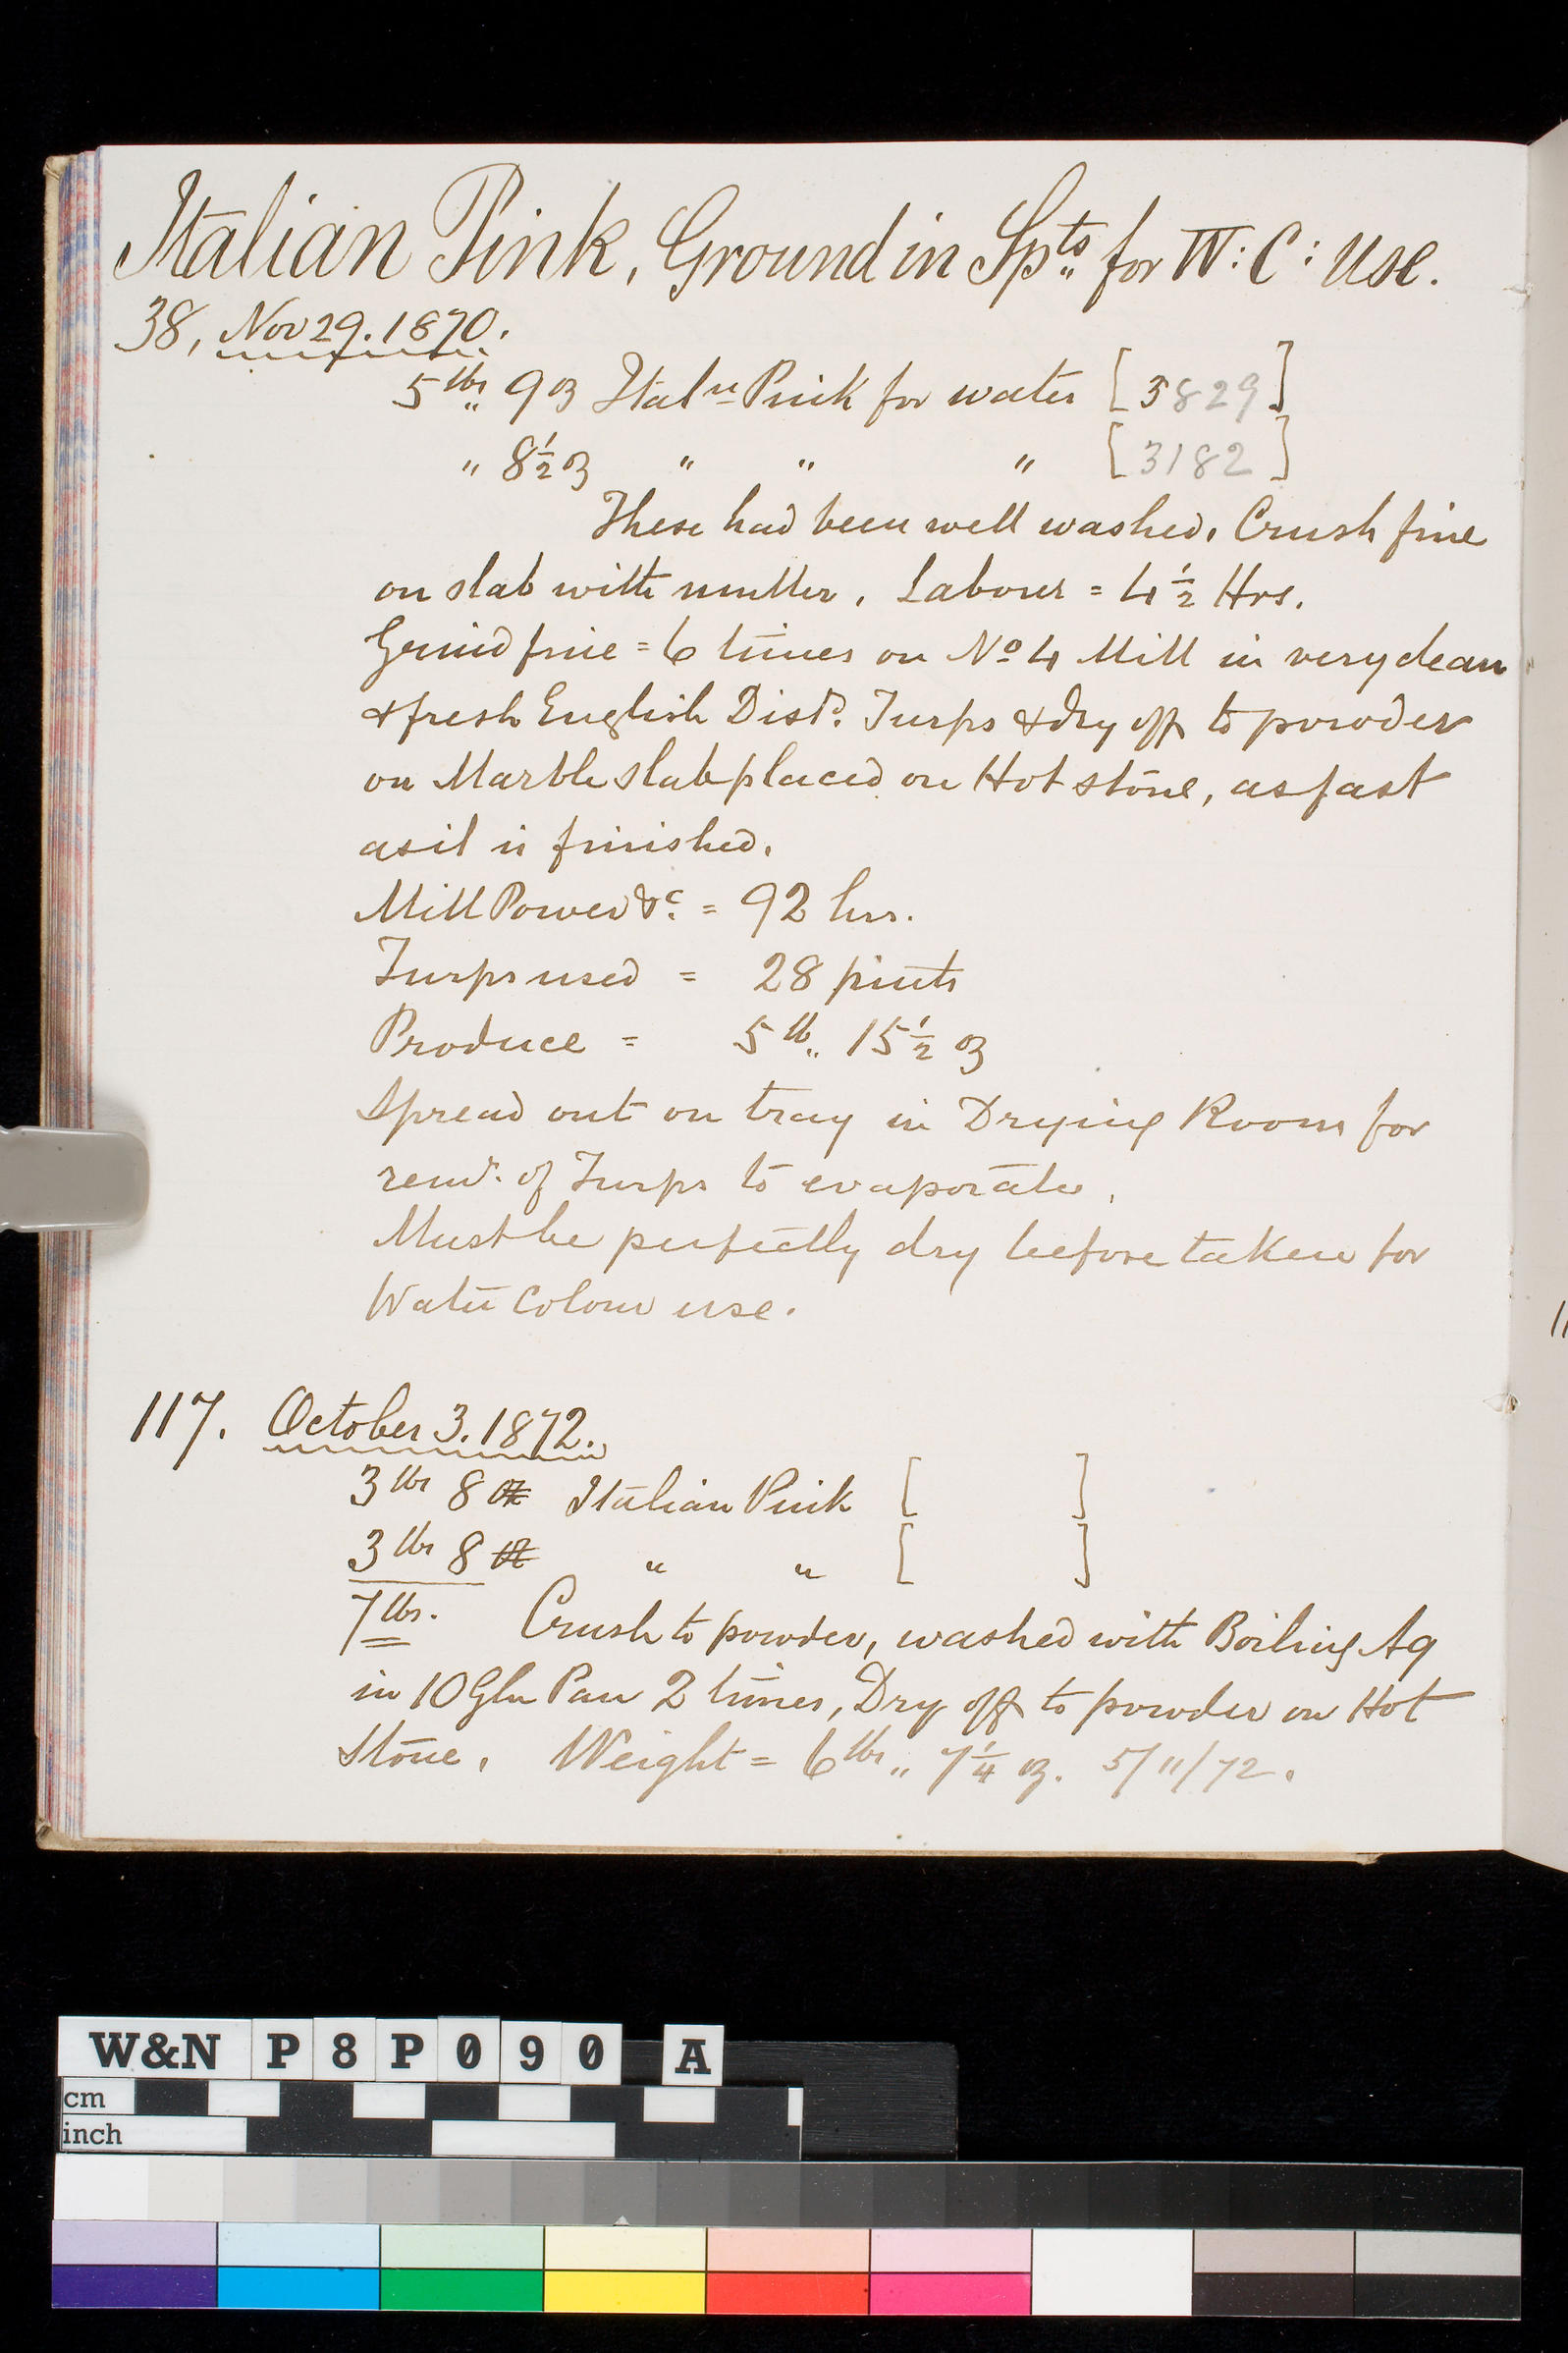 Italian Pink, Ground in Spts for W: C: Use.
38, Nov 29. 1870.
5 lbs „ 9 oz Italn Pink for water [3829]
„ 8½ oz „ „ „ [3182]
These had been well washed. Crush fine
on slab with muller. Labour = 4½ Hrs.
Grind fine = 6 times on No 4 Mill in very clean
& fresh English Distd. Turps & dry off to powder
on Marble slab placed on Hot stone, as fast
as it is finished.
Mill Power &c. = 92 hrs.
Turps used = 28 pints
Produce = 5 lb „ 15½ oz
Spread out on tray in Drying Room for
remr. of Turps to evaporate.
Must be perfectly dry before taken for
Water Colour use.
117. October 3. 1872.
3 lbs 8 oz Italian Pink [ ]
3 lbs 8 oz „ „ [ ]
7 lbs. Crush to powder, washed with Boiling Aq
in 10 Gln Pan 2 times, Dry off to powder on Hot
Stone. Weight = 6 lbs „ 7¼ oz. 5/11/72.
11
W&N P8P090 A
cm
inch